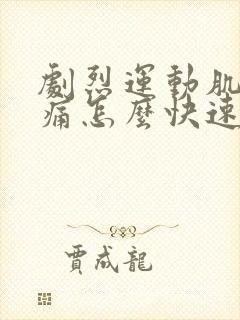 劇烈運動肌
痛怎麼快速
賈成龍